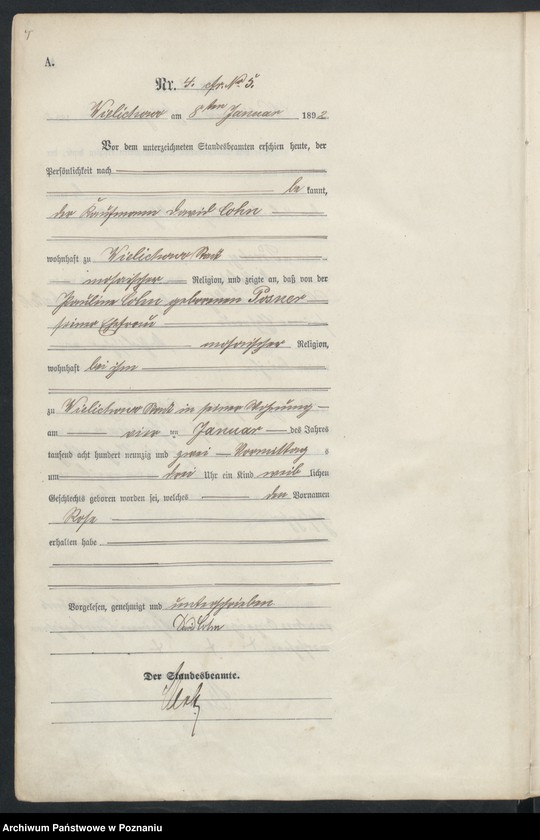 A.
Nr. 4. cfr. No 5.
Wielichowo am 8ten Januar 1892
Vor dem unterzeichneten Standesbeamten erschien heute, der
Persönlichkeit nach
be kannt,
der Kaufmann David Cohn
wohnhaft zu Wielichowo Stadt
mosaischer Religion, und zeigte an, daß von der
Pauline Cohn geborenen Posner
seiner Ehefrau
mosaischer Religion,
wohnhaft bei ihm
zu Wielichowo Stadt in seiner Wohnung
am vier ten Januar des Jahres
tausend acht hundert neunzig und zwei Vormittag s
um drei Uhr ein Kind weib lichen
Geschlechts geboren worden sei, welches den Vornamen
Rosa
erhalten habe
Vorgelesen, genehmigt und unterschrieben
David Cohn
Der Standesbeamte.
Archiwum Państwowe w Poznaniu